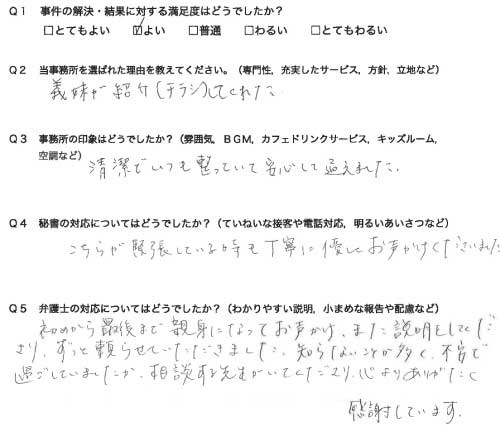 Q1 事件の解決・結果に対する満足度はどうでしたか？
□とてもよい ☑よい □普通 □わるい □とてもわるい
Q2 当事務所を選ばれた理由を教えてください。（専門性，充実したサービス，方針，立地など）
義妹が紹介（チラシ）してくれた．
Q3 事務所の印象はどうでしたか？（雰囲気，BGM，カフェドリンクサービス，キッズルーム，
空調など）
清潔でいつも整っていて安心して過えれた．
Q4 秘書の対応についてはどうでしたか？（ていねいな接客や電話対応，明るいあいさつなど）
こちらが緊張している時も丁寧に優しくお声がけくださいました
Q5 弁護士の対応についてはどうでしたか？（わかりやすい説明，小まめな報告や配慮など）
初めから最後まで親身になってお声がけ、また説明をしてくだ
さり、ずっと頼らせていただきました．知らないことが多く、不安で
過ごしていましたが、相談する先生がいてくださり、心よりありがたく
感謝しています．